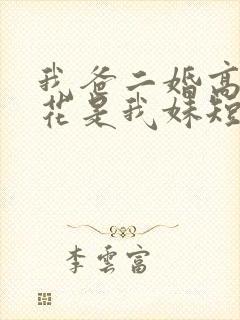 我爸二婚高
花是我妹短
李雲富